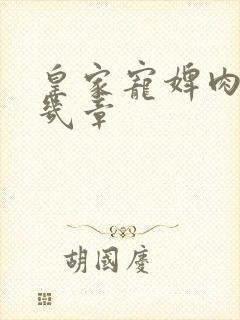 皇家寵婢肉
幾章
胡國慶